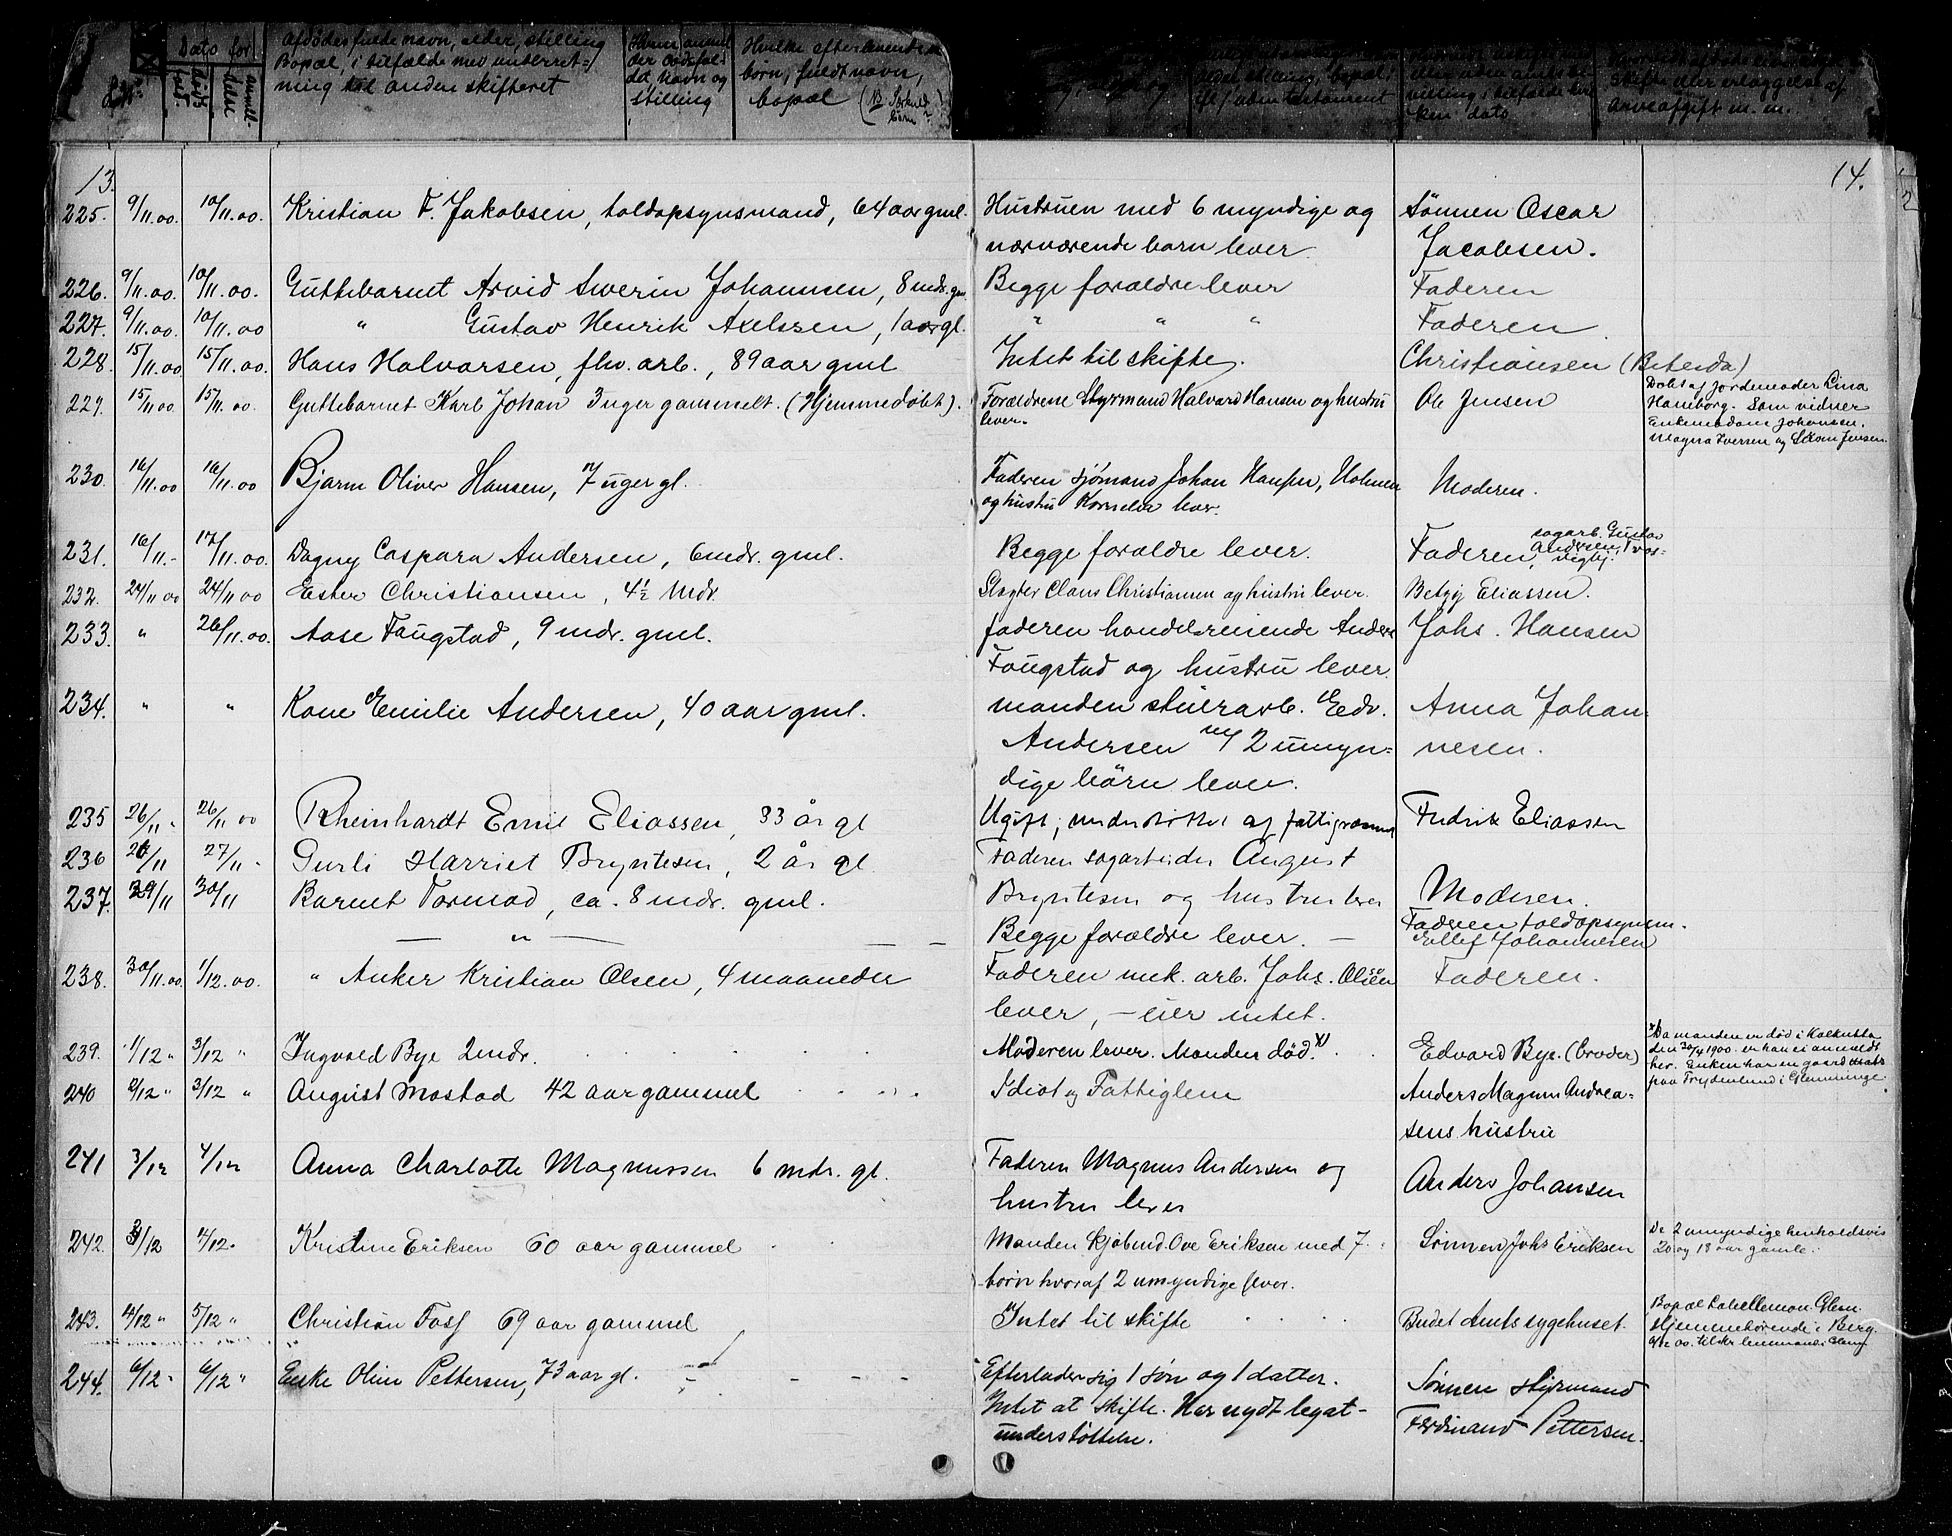 Dato for
död
anmeldelse
Afdödes fulde navn, alder, stilling
Bopæl, i tilfælde med underret-
ning til anden skifteret
der dödsfal-
det navn og
stilling
Hvilke efterlevende
börn, fuldt navn,
bopæl
stilling, bopæl,
testament
ken dato
skifte eller erlæggelse af
arveafgift m. m.
13.
14.
225. 9/11.00. 10/11.00. Kristian F. Jakobsen, toldopsynsmand, 64 aar gml. Hustruen med 6 myndige og Sönnen Oscar
nærværende barn lever Jacobsen.
226. 9/11.00. 10/11.00. Guttebarnet Arvid Swerin Johannsen, 8 mdr. gm. Begge forældre lever Faderen
227. 9/11.00. 10/11.00 " Gustav Henrik Axelssen, 1 aar gl. " " " Faderen
228. 15/11.00 15/11.00. Hans Halvorsen, fhv. arb., 89 aar gml Intet til skifte. Christiansen (Betesda)
229. 15/11 00 15/11.00. Guttebarnet Karl Johan 3 uger gammelt. (Hjemmedøbt). Forældrene Styrmand Halvard Hansen og hustru Ole Jensen Døbt af jordemoder Lina
lever. Haneborg. Som vidner
Enkemadam Johansen.
Magna Iversen og Jensen.
230. 16/11.00 16/11.00 Bjarne Oliver Hansen, 7 uger gl. Faderen sjømand Johan Hansen, Holmen Moderen.
og hustru Kornelia lever.
231. 16/11.- 17/11.00. Dagny Caspara Andersen, 6 mdr. gml. Begge forældre lever. Faderen, sagarb. Gustav
Andersen,
232. 24/11 00 24/11 00 Ester Christiansen, 4½ Mdr. Slagter Claus Christiansen og hustru lever. Betzy Eliassen.
233. " 26/11.00. Aase Faugstad, 9 mdr. gml. faderen handelsreisende Anders Johs. Hansen
Faugstad og hustru lever.
234. " " Kone Emilie Andersen, 40 aar gml. manden stuerarb. Edv. Anna Johan-
Andersen m/ 2 umyn- nesen.
dige børn lever.
235 26/11 - 26/11 00 Rheinhardt Emil Eliassen, 33 år gl Ugift, understöttet af fattigvæsenet Fredrik Eliassen
236 26/11 27/11 - Gurli Harriet Bryntesen, 2 år gl Faderen sagarbeider August
237. 29/11 30/11 Barnet Tormod, ca. 8 mdr. gml. Bryntesen og hustru lever Moderen.
— " — — — Begge forældre lever. — Faderen toldopsynsm.
Ellef Johannesen
238. 30/11.00. 1/12.00. " Anker Kristian Olsen, 4 maaneder Faderen mek. arb. Johs. Olsen Faderen.
lever, — eier intet.
239. 1/12 " 3/12 " Ingvald Bye 2 mdr. Moderen lever. Manden død. x) Edvard Bye. (broder) x) Da manden er død i Kalkutta
den 30/4 1900 er han ei anmeldt
her. Enken har en gaard
paa Frydenlund i Glemminge.
240 2/12 " 3/12 " August Mostad 42 aar gammel Idiot og Fattiglem Anders Magnus Andrea-
sens hustru
241 3/12 4/12 Anna Charlotte Magnussen 6 mdr. gl. Faderen Magnus Andersen og Anders Johansen
hustru lever
242. 3/12 4/12. Kristine Eriksen 60 aar gammel Manden kjøbmd. Ove Eriksen med 7 Sønnen Johs Eriksen De 2 umyndige henholdsvis
børn hvoraf 2 umyndige lever. 20 og 18 aar gamle.
243. 4/12 " 5/12 " Christian Foss 69 aar gammel Intet til skifte Budet Amtssygehuset. Bopæl Labellemon. Glem.
Hjemmehørende i Berg.
244. 6/12 - 6/12 " Enke Oline Pettersen, 73 aar gl. Efterlader sig 1 søn og 1 datter. Sönnen styrmand
Intet at skifte. Har nydt legat- Ferdinand Pettersen.
understøttelse.